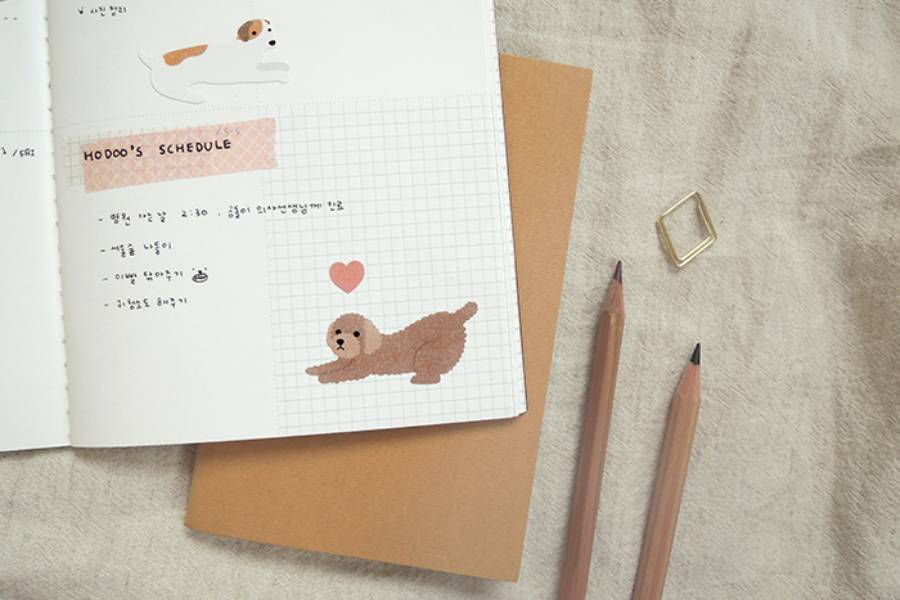 사진 정리
/ FRI
HODOO'S SCHEDULE
- 병원 가는 날 2:30 , 의사선생님께 진료
- 나들이
- 이빨 닦아주기
- 귀청소도 해주기